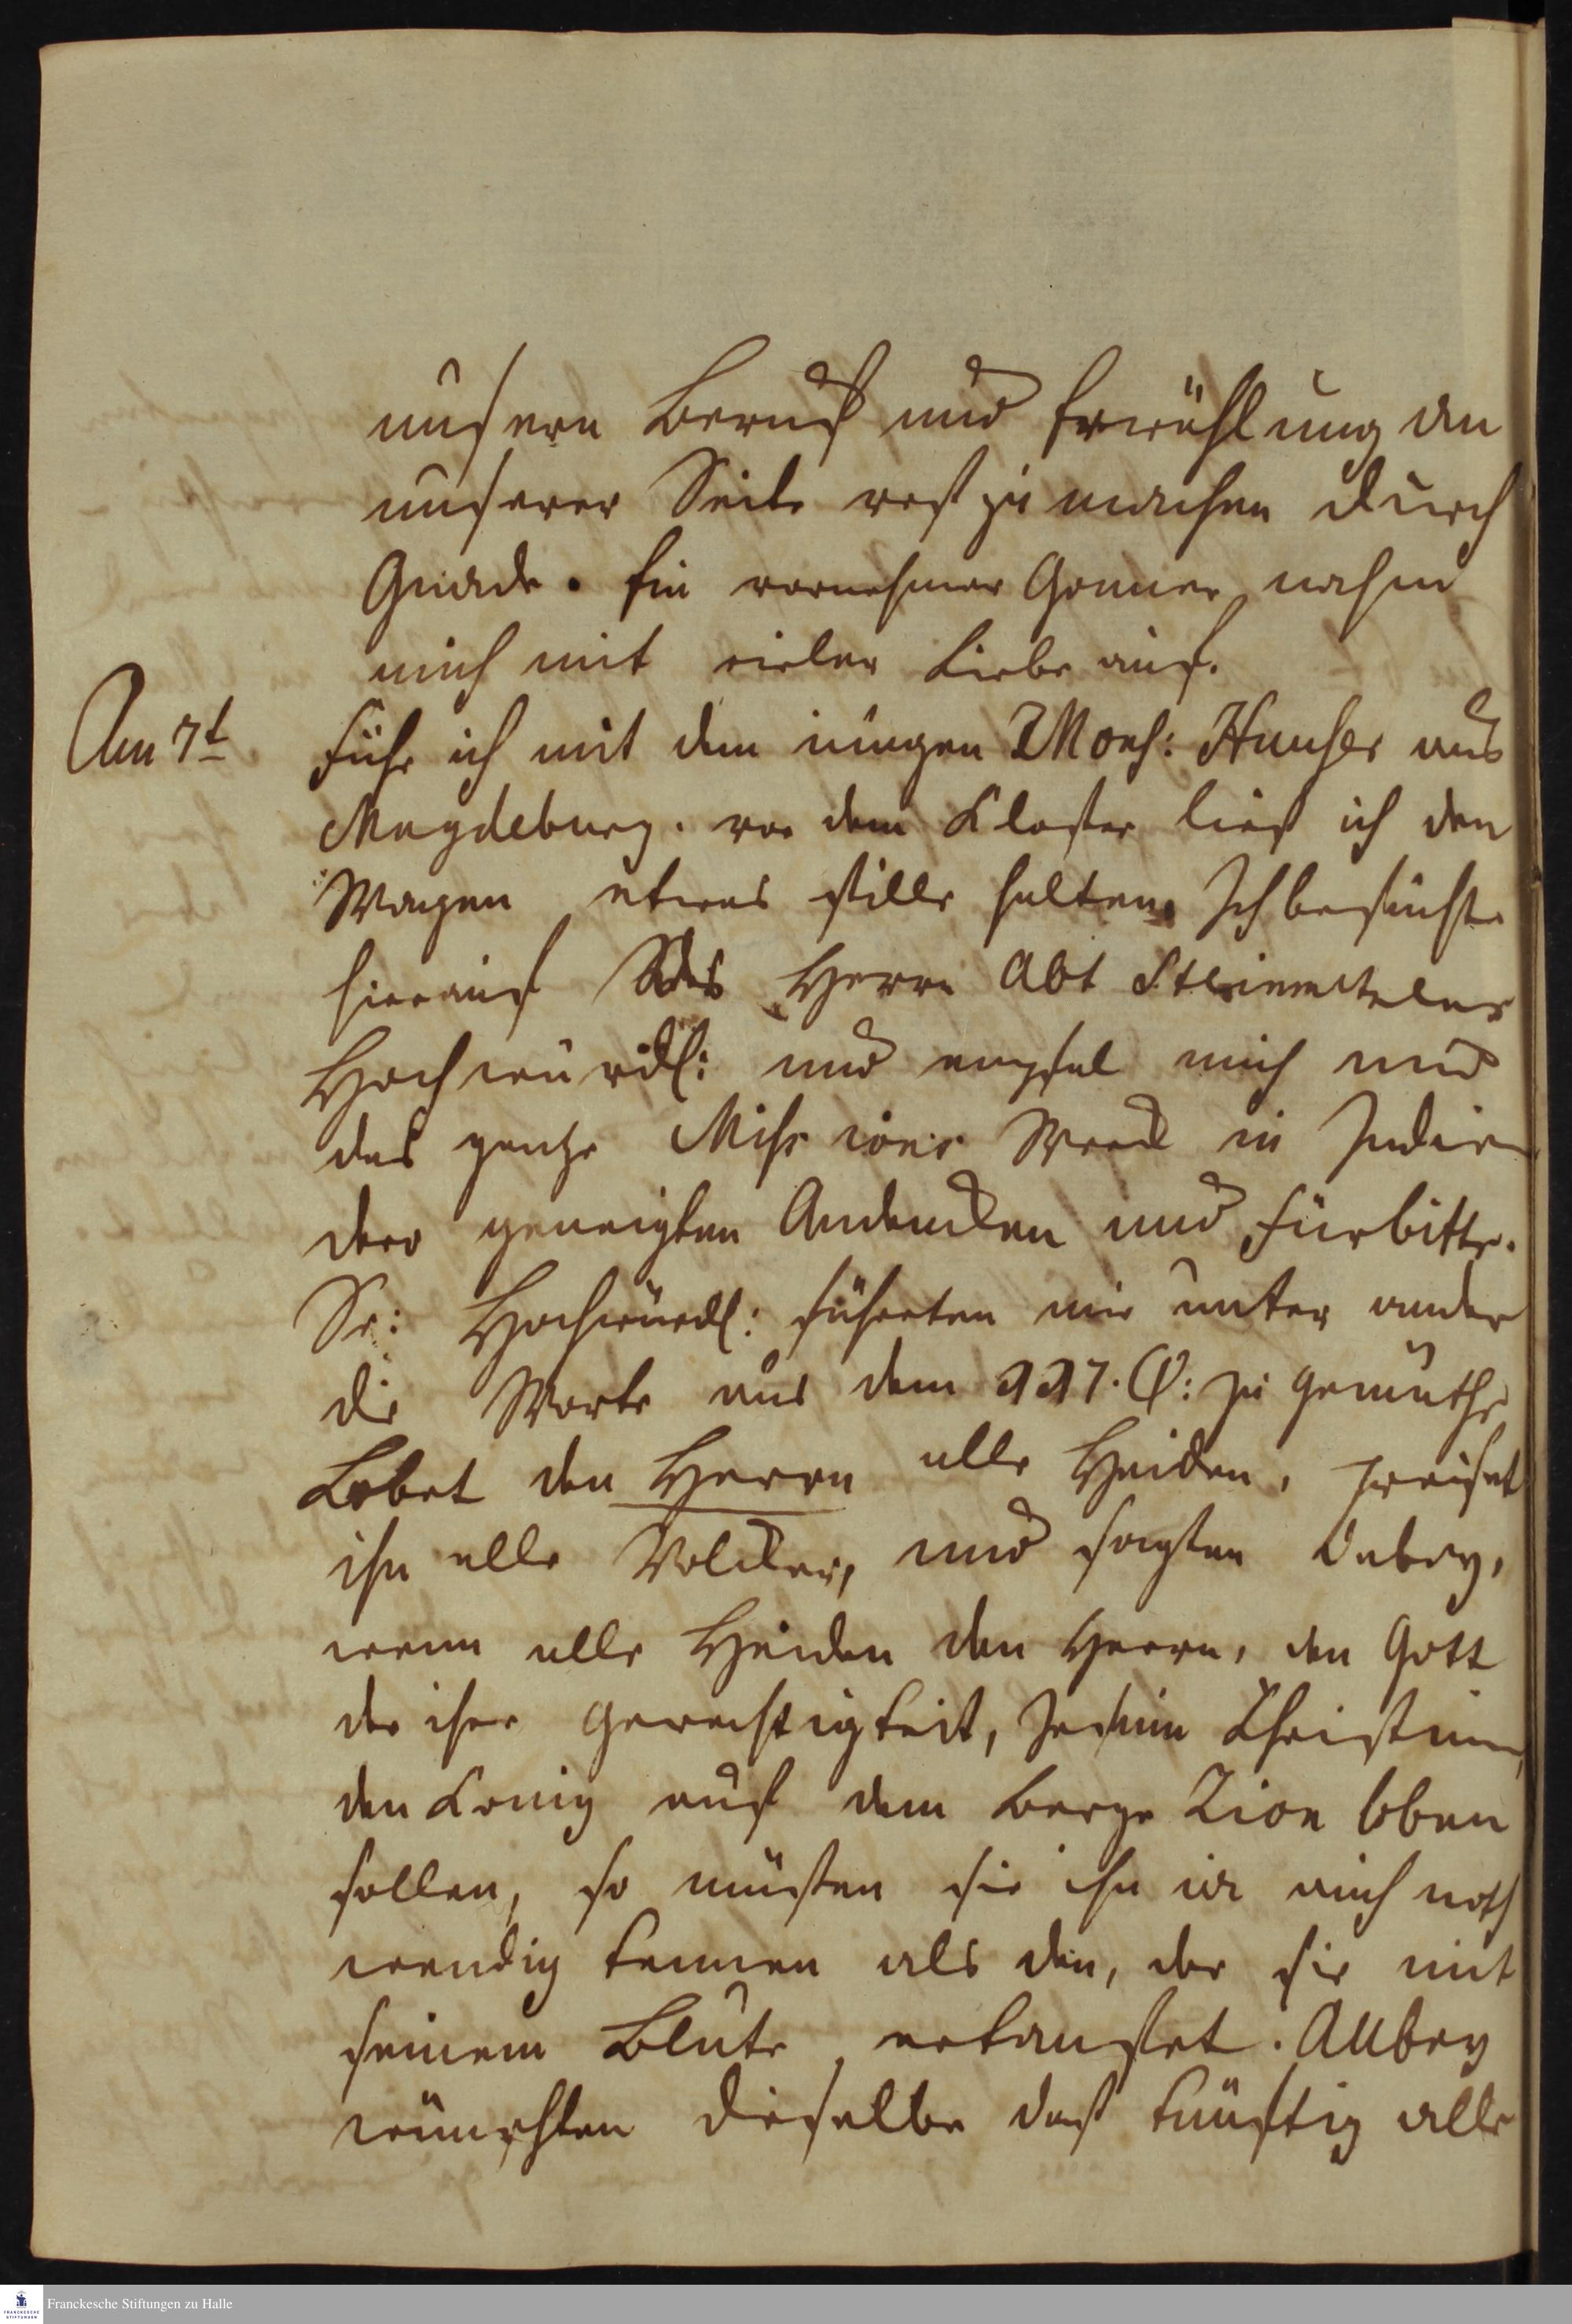 unsern Beruf und Erwählung an
unserer Seite vest zu machen durch
Gnade. Ein vornehmer Gonner nahm
mich mit vieler Liebe auf.
Am 7t fuhr ich mit dem iungen Mons: aus
Magdeburg. vor dem Kloster ließ ich den
Wagen etwas stille halten. Ich besuchte
hierauf des Herrn Abt
Hochwurdl: und empfal mich und
das gantze Miss ions Werck in Indien
dero geneigten Andencken und Fürbitte.
Sr: Hochwürdl: führeten mir unter ander
die Worte aus dem 117. Ps: zu Gemuthe
Lobet den Herrn alle Heiden, preiset
ihn alle Volcker, und sagten dabey,
wenn alle Heiden den Herrn, den Gott
der ihre Gerechtigkeit, Jesum Christum,
den Konig auf dem Berge Zion loben
sollen, so müsten sie ihn ia auch noth
wendig kennen als den, der sie mit
seinem Blute erkaufet. Allbey
wünschten dieselbe daß künftig alle
Franckesche Stiftungen zu Halle